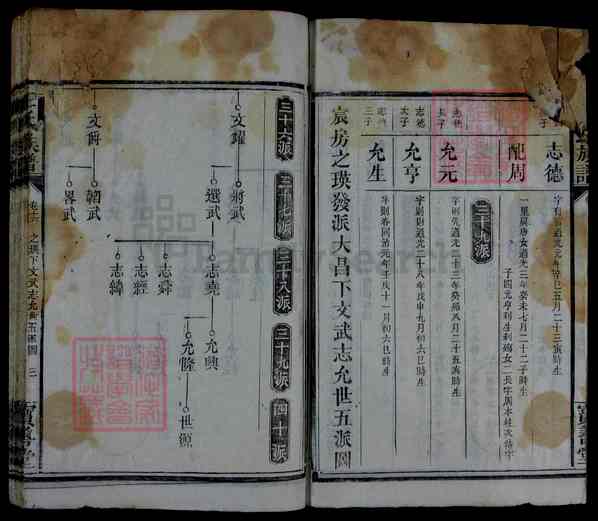 志德
字□則道光元年辛巳五月二十三寅時生
配周
一里與唐女道光三年癸未七月二十二子時生
子四元亨利生利殤女二長字周本姓次待字
三十九派
志德
長子
允元
字則先道光二十三年癸卯八月二十五寅時生
志德
次子
允亨
字則則道光二十八年戊申九月初六巳時生
志德
三子
允生
字則春同治元年壬戌十一月初六巳時生
宸房之瑛發派大昌下文武志允世五派圖
三十六派
三十七派
三十八派
三十九派
四十派
文耀
文爵
將武
選武
韜武
畧武
志堯
志舜
志經
志緯
允興
允隆
世源
族譜
卷十六
之瑛下文武志允世五派圖
三
寶善堂